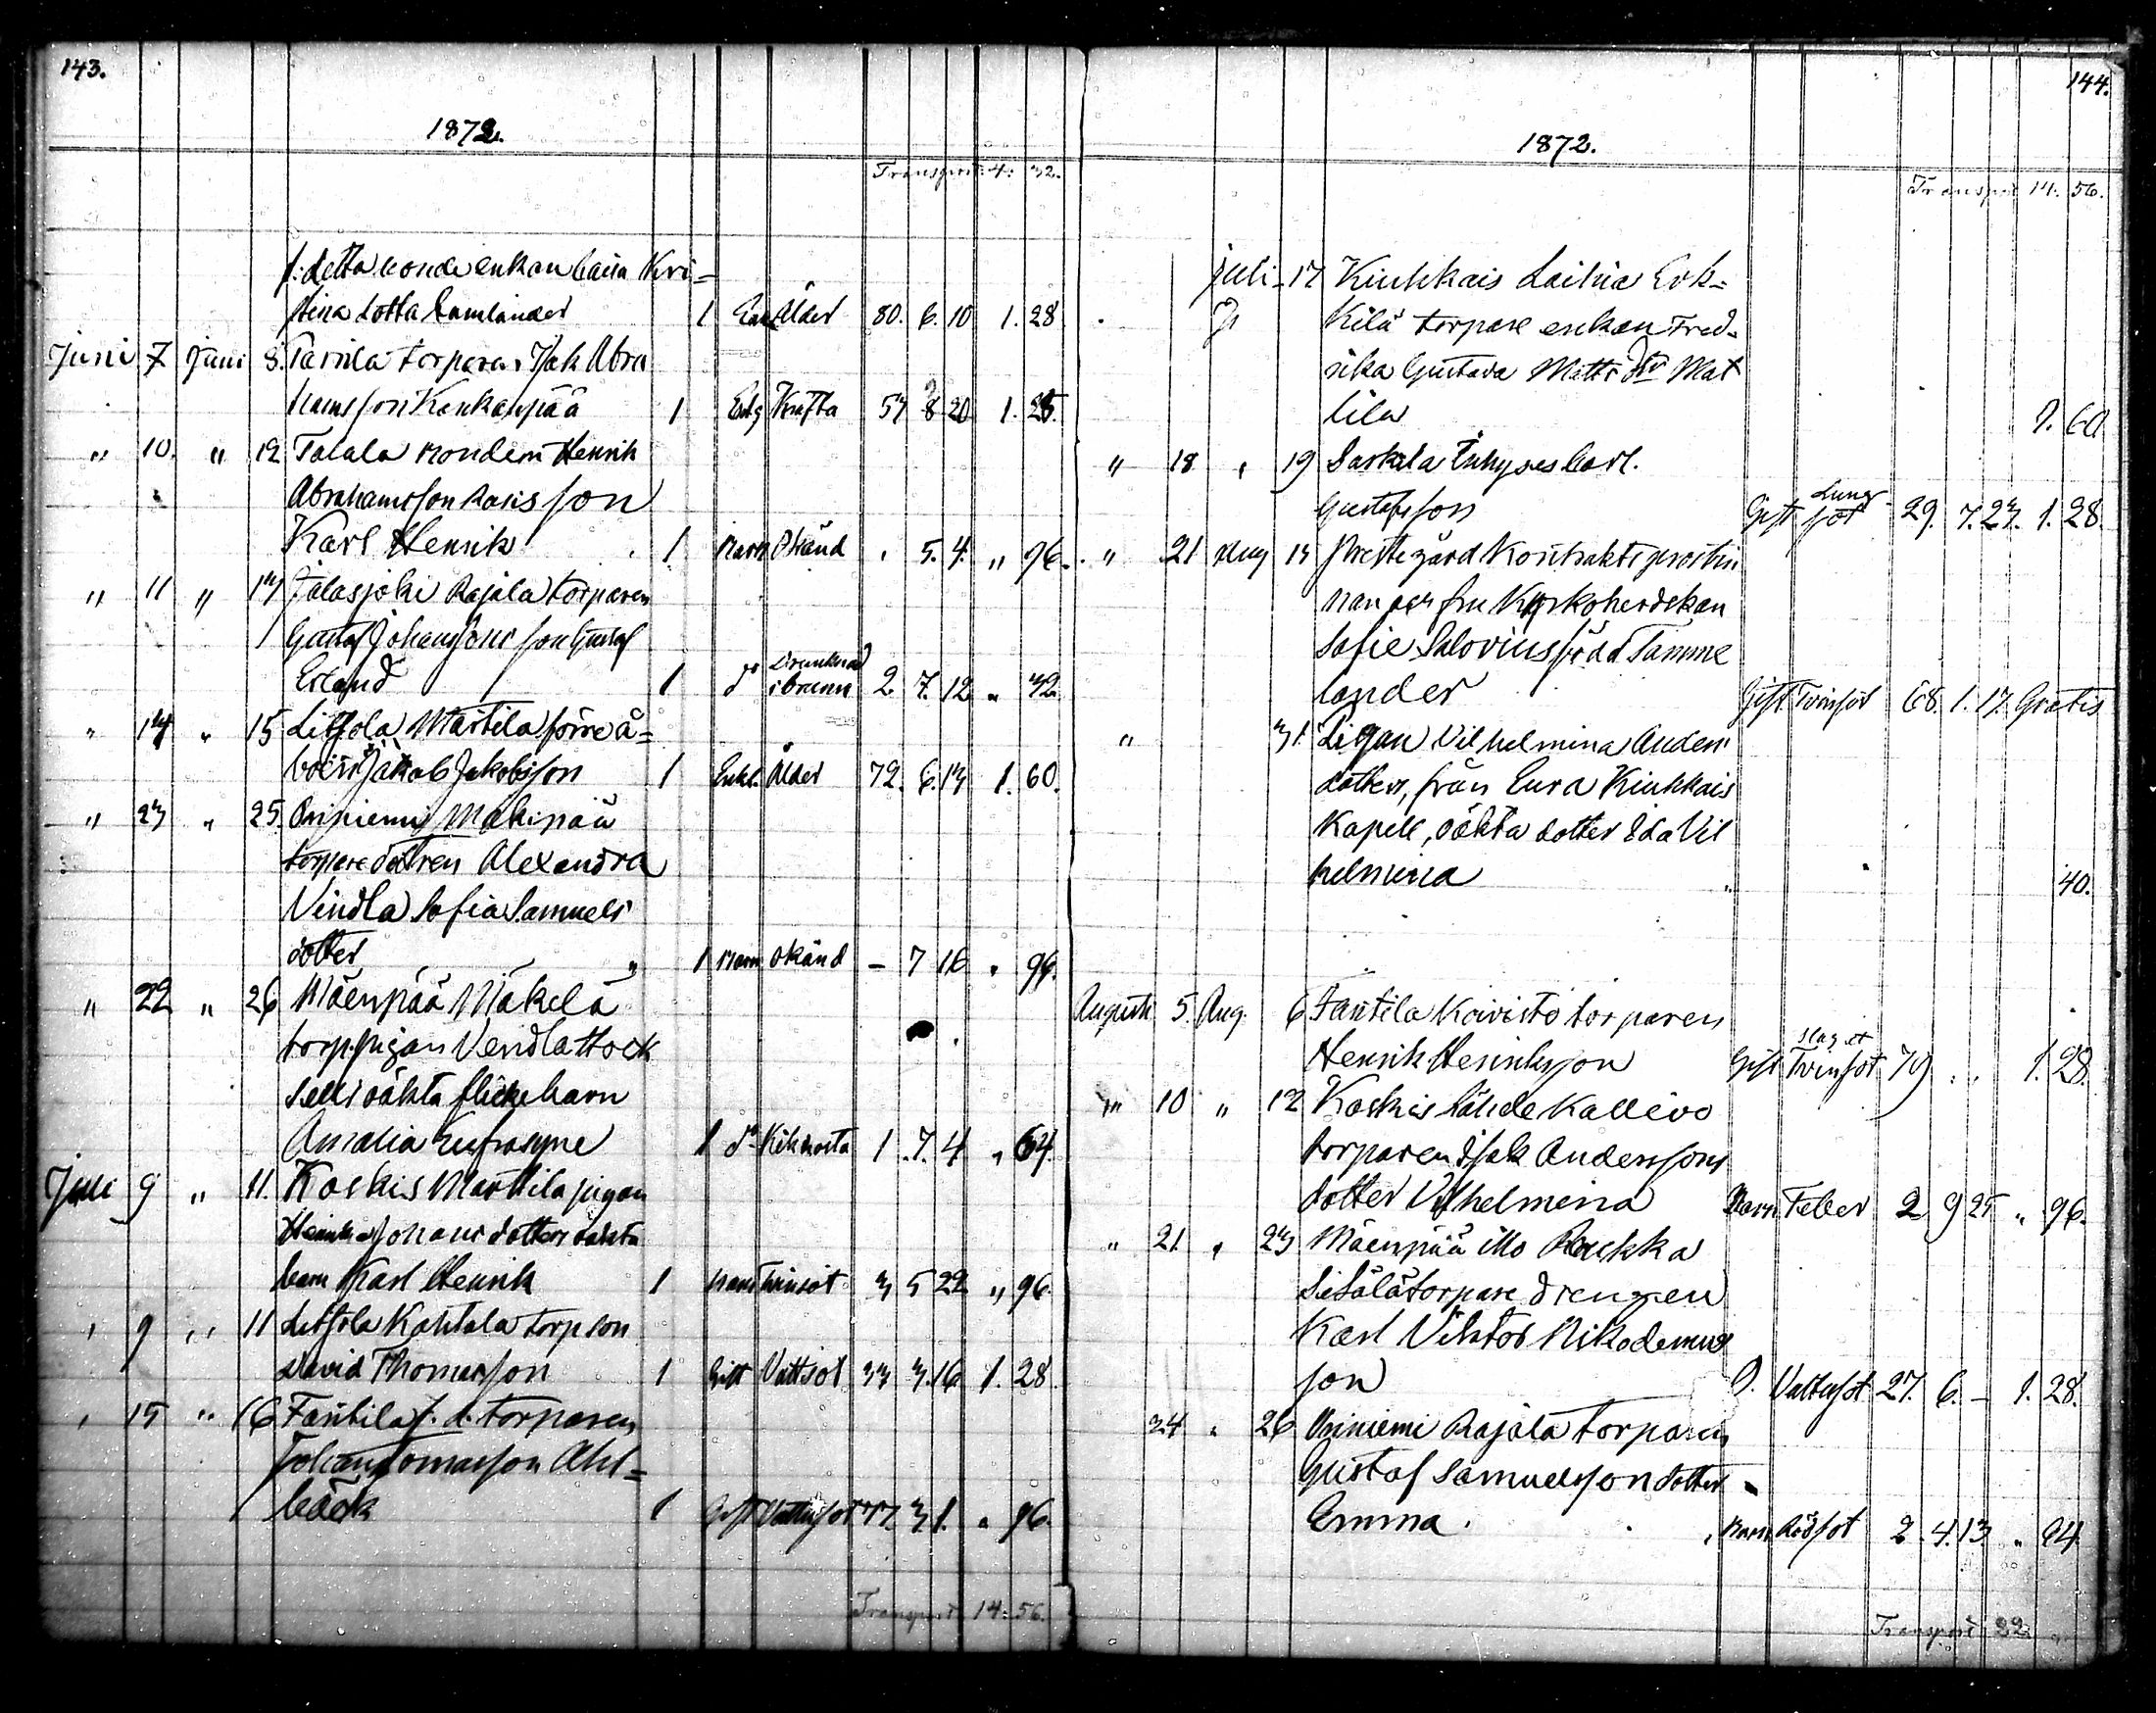 143.
1872.
Transport 4: 32.
f. detta bonde enkan Caisa Kri=
stina Lotta Samlander 1 Enk Ålder 80. 6. 10 1. 28
Juni 7 Juni 8. torparen Isak Abra
hamsson Kankanpää 1 Enkg Kräfta 57 8 20 1. 28.
" 10. " 12 Talala bonden Henrik
Abrahamsson son
Karl Henrik 1 Barn Okänd " 5. 4. " 96.
" 11 " 14 Jalasjoki Rajala torparen
Gustaf Johanssons son Gustaf
Erland 1 d° Drunknad i brunn 2. 7. 12 " 42
" 14 " 15 Littjola Marttila förre å=
boen Jakob Jakobsson 1 Enkl. Ålder 72. 6. 14 1. 60.
" 23 " 25. Piiniemi Mäkipää
torpare dottren Alexandra
Vendla Sofia Samuels
dotter " 1 Barn Okänd – 7 16 " 96.
" 22 " 26 Mäenpää Mäkelä
torp. pigan Vendla
oäkta flickebarn
Amalia Eufrosyne 1 d° Kikhosta 1. 7. 4 " 64.
Juli 9 " 11. Koskis Marttila pigan
Johansdotters oäkta
barn Karl Henrik 1 Barn Tvinsot 3 5 22 " 96.
" 9 " 11 Littjola Kahtala torp son
David Thomasson 1 Gift Vattsot 33 3. 16 1. 28
" 15 " 16 Fantila f. d. torparen
Johan Tomasson Ahl=
bäck 1 Gift Vattusot 77. 3 1. " 96.
Transport 14: 56.
144.
1872.
Transport 14. 56.
Juli 17 Kiukkais Laihia Erk=
kilä torpare enkan Fred=
rika Gustava Mattsdtr Mat
tila 1. 60
" 18 " 19 Inhyses Carl
Gustafsson Gift Lungsot 29. 7. 23. 1. 28.
" 21 Aug 14 Prestegård Kontraktsprostin
nan och fru Kyrkoherdskan
Sofie Salovius född Tamme
lander Gift Tvinsot 68. 1. 17. Gratis
" 31. Pigan Vilhelmina Anders
dotters, från Eura Kiukkais
Kapell, oäkta dotter Eda Vil
helmina 40.
Augusti 5. Aug. 6 Fantila Koivisto torparen
Henrik Henriksson Gift Slag et Tvinsot 79 " " 1. 28.
" 10 " 12 Koskis Lähde Kallivo
torparen Isak Anderssons
dotter Vilhelmina Barn Feber 2 9 25 " 96.
" 21 " 23 Mäenpää Illo Raukka
torpare drengen
Karl Viktor Nikodemus
son O. Vattusot 27. 6. – 1. 28.
24 " 26 Piiniemi Rajala torparen
Gustaf Samuelsson dotter
Emma. Barn Rödsot 2. 4. 13 " 94.
Transport 22: